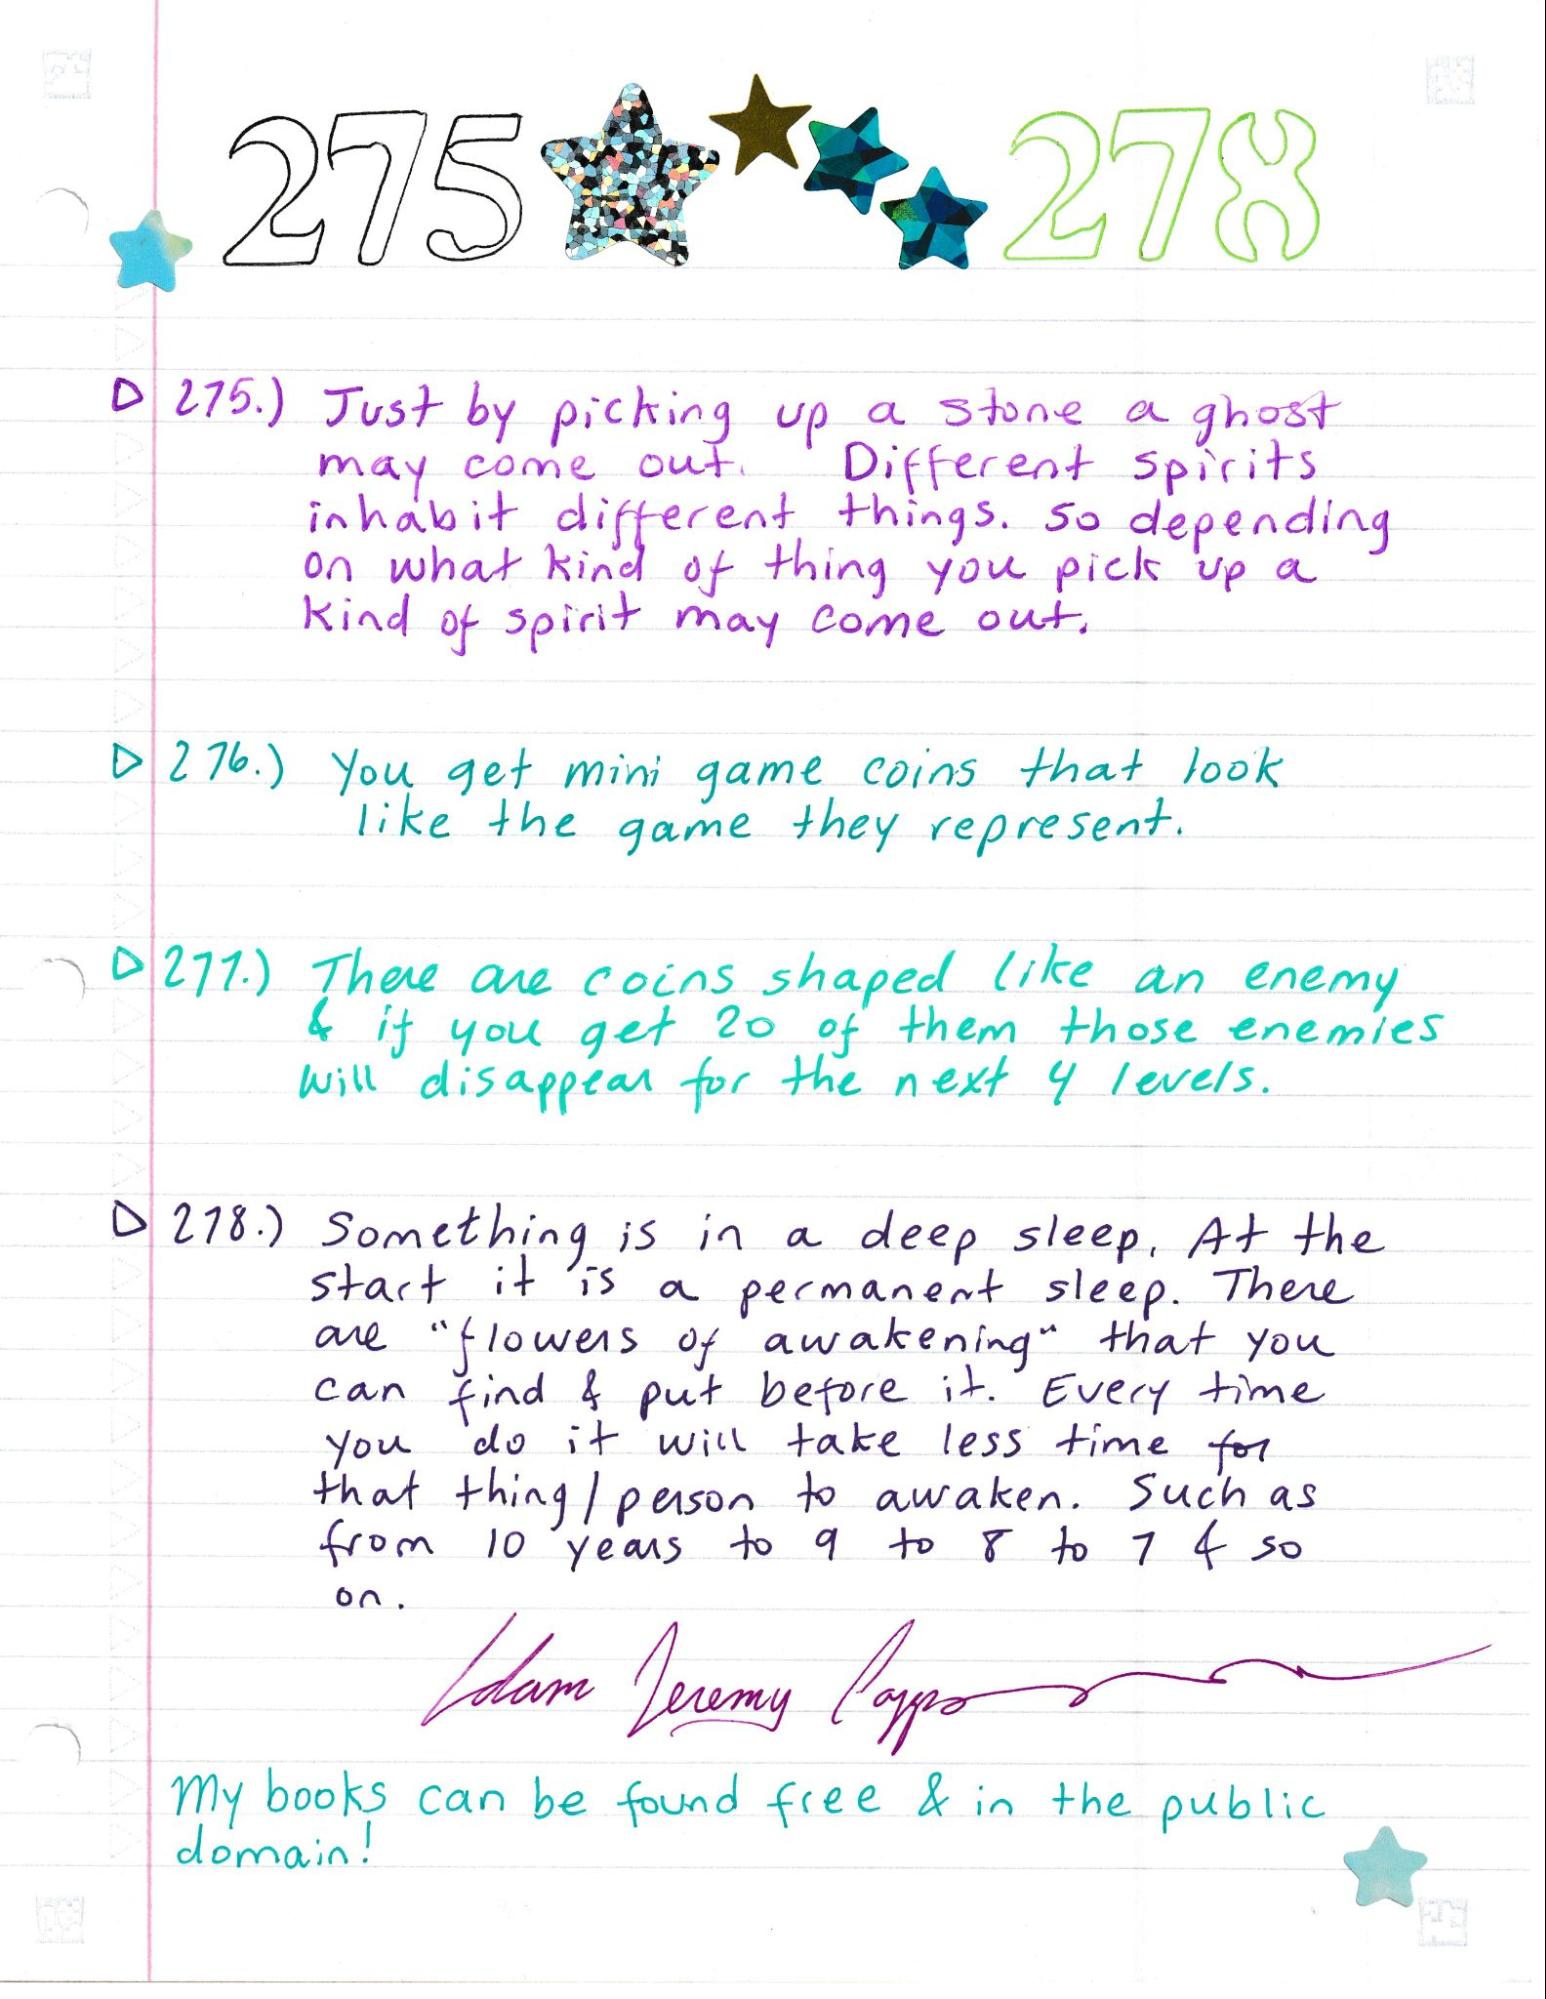 275 278
275.) Just by picking up a stone a ghost
may come out. Different spirits
inhabit different things. so depending
on what kind of thing you pick up a
kind of spirit may come out.
276.) You get mini game coins that look
like the game they represent.
277.) There are coins shaped like an enemy
& if you get 20 of them those enemies
will disappear for the next 4 levels.
278.) Something is in a deep sleep. At the
start it is a permanent sleep. There
are "flowers of awakening" that you
can find & put before it. Every time
you do it will take less time for
that thing/person to awaken. Such as
from 10 years to 9 to 8 to 7 & so
on.
Adam Jeremy Capps
My books can be found free & in the public
domain!